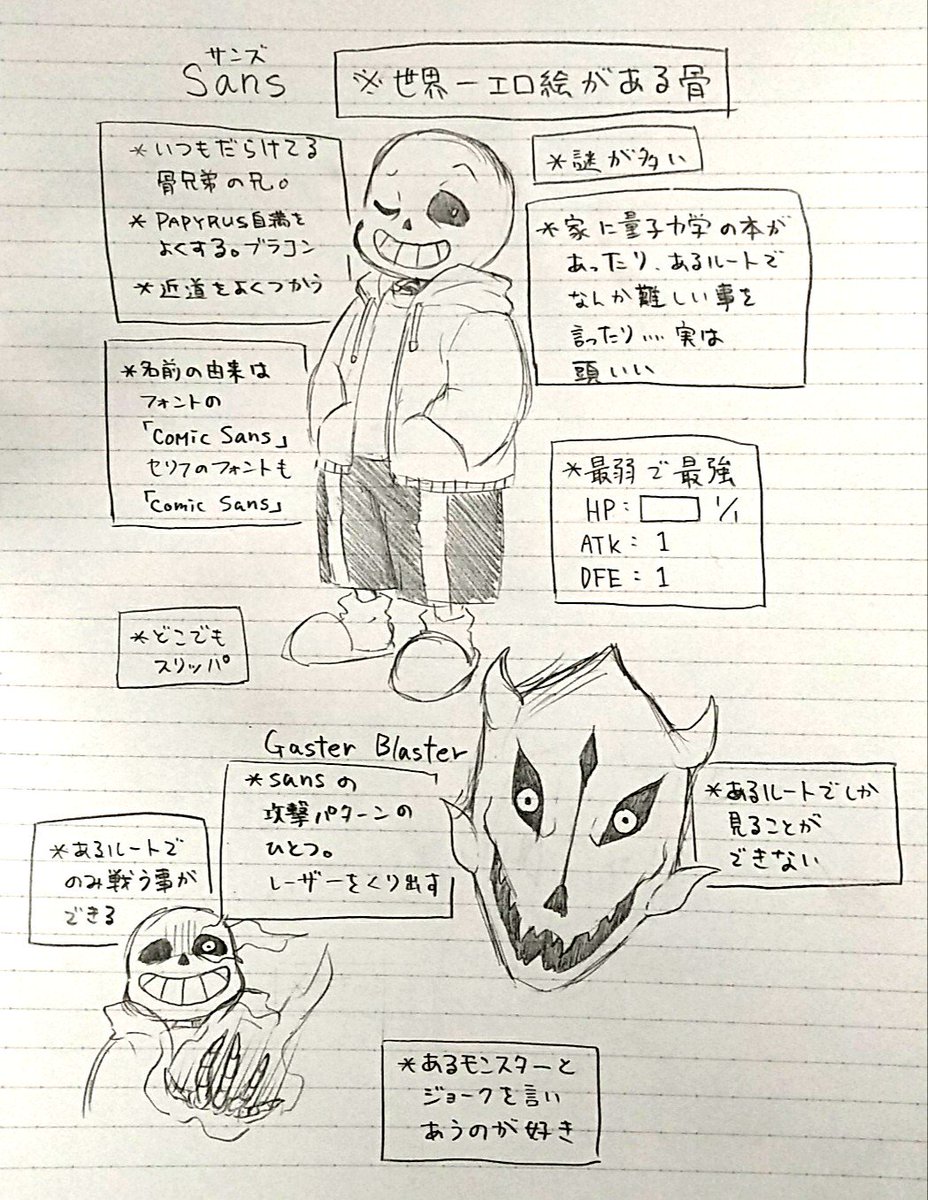 サンズ
Sans
※世界一エロ絵がある骨
*いつもだらけてる
骨兄弟の兄。
*PAPYRUS自満を
よくする。ブラコン
*近道をよくつかう
*謎が多い
*家に量子力学の本が
あったり、あるルートで
なんか難しい事を
言ったり....実は
頭いい
*名前の由来は
フォントの
「Comic Sans」
セリフのフォントも
「Comic Sans」
*最弱で最強
HP: 1/1
ATK: 1
DFE: 1
*どこでも
スリッパ
Gaster Blaster
*sansの
攻撃パターンの
ひとつ。
レーザーをくり出す
*あるルートでしか
見ることが
できない
*あるルートで
のみ戦う事が
できる
*あるモンスターと
ジョークを言い
あうのが好き